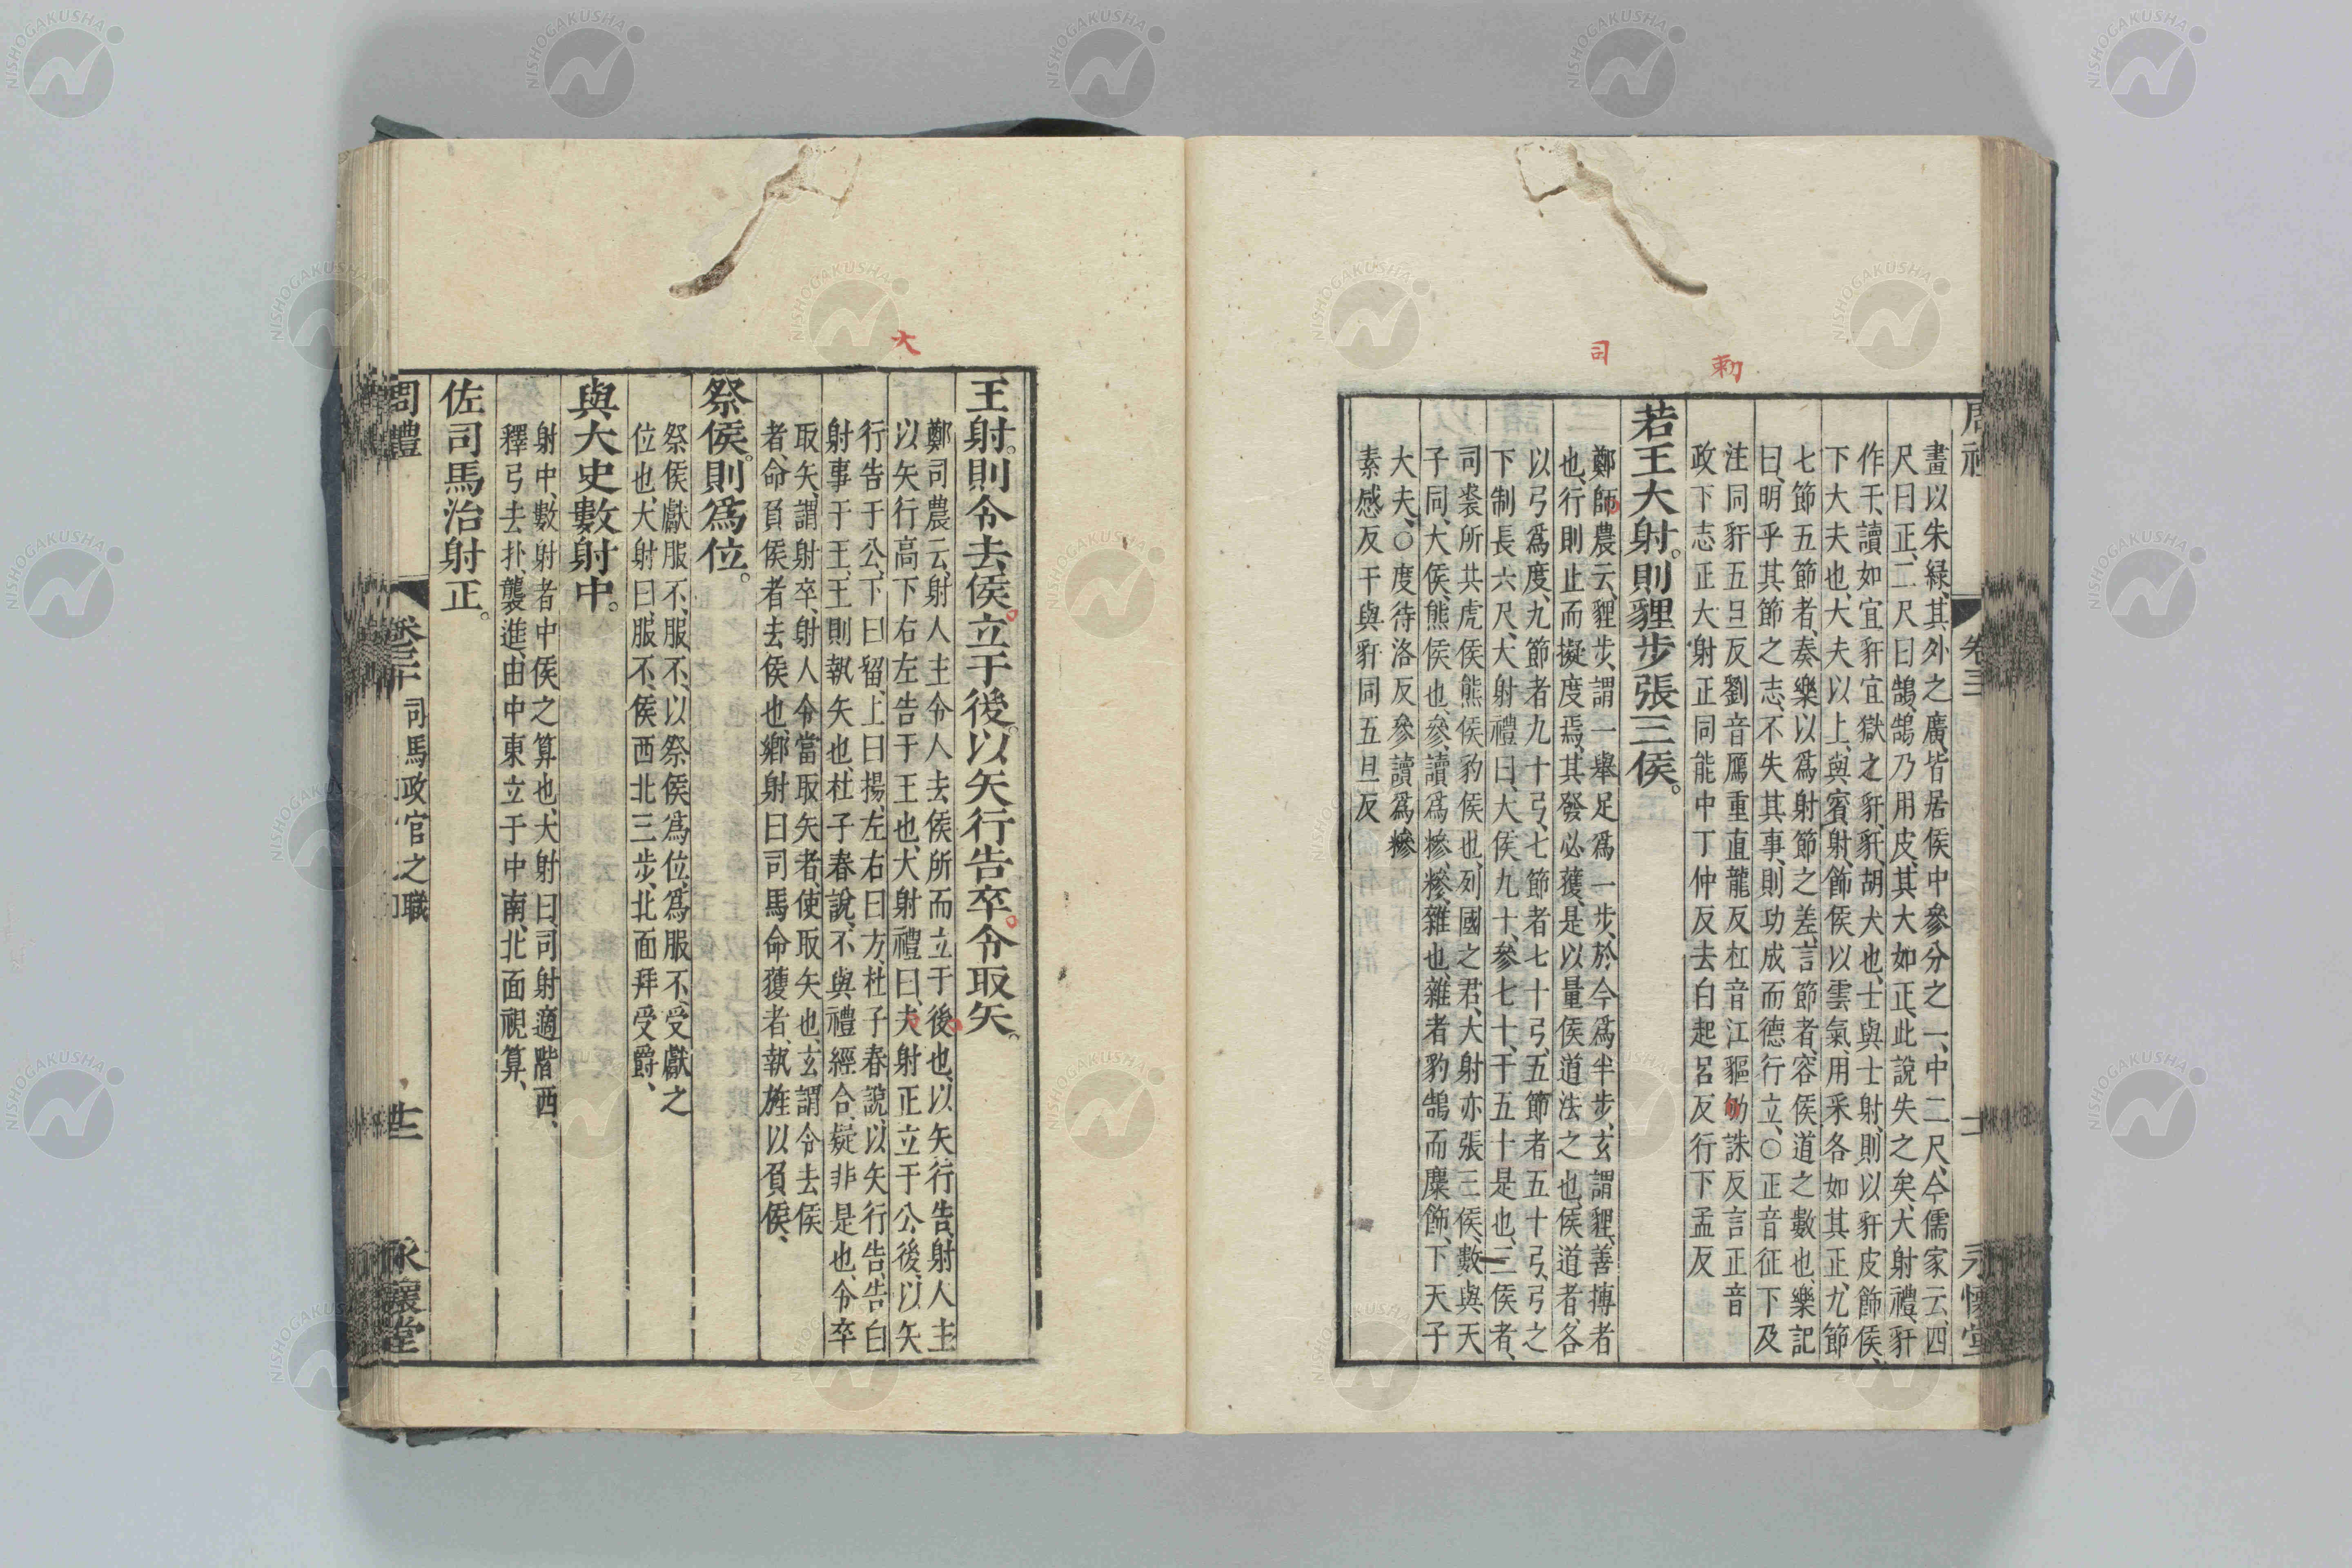 司
勅
畫以朱緑、其外之廣、皆居侯中參分之一、中二尺、今儒家云、四
尺曰正、二尺曰鵠、鵠乃用皮、其大如正、此說失之矣、大射禮、豻
作干、讀如宜豻宜獄之豻、豻、胡犬也、士與士射、則以豻皮飾侯、
下大夫也、大夫以上、與賓射、飾侯以雲氣、用采各如其正、九節
七節五節者、奏樂以爲射節之差、言節者、容侯道之數也、樂記
曰、明乎其節之志、不失其事、則功成而德行立、○正音征下及
注同豻五旦反劉音鴈重直龍反杠音江軀劬誅反言正音
政下志正大射正同能中丁仲反去白起呂反行下孟反
若王大射。則貍步張三侯。
鄭師農云、貍步、謂一舉足爲一步、於今爲半步、玄謂貍、善搏者
也、行則止而擬度焉、其發必獲、是以量侯道法之也、侯道者、各
以弓爲度、九節者九十弓、七節者七十弓、五節者五十弓、弓之
下制長六尺、大射禮曰、大侯九十、參七十、干五十是也、三侯者、
司裘所共虎侯熊侯豹侯也、列國之君、大射亦張三侯、數與天
子同、大侯、熊侯也、參、讀爲糝、糝、雜也、雜者豹鵠而麋飾、下天子
大夫、○度待洛反參讀爲糝
素感反干與豻同五旦反
大
王射。則令去侯。立于後。以矢行告卒。令取矢。
鄭司農云、射人主令人去侯所而立于後也、以矢行告、射人主
以矢行高下右左告于王也、大射禮曰、夫射正立于公後、以矢
行告于公、下曰留、上曰揚、左右曰方、杜子春說、以矢行告、告白
射事于王、王則執矢也、杜子春說、不與禮經合、疑非是也、令卒
取矢、謂射卒、射人令當取矢者、使取矢也、玄謂令去侯
者、命負侯者去侯也、鄉射曰司馬命獲者、執旌以負侯、
祭侯。則爲位。
祭侯獻服不、服不、以祭侯爲位、爲服不、受獻之
位也、大射曰、服不、侯西北三步、北面拜受爵、
與大史數射中。
射中、數射者中侯之算也、大射曰、司射適階西、
釋弓去扑、襲進、由中東立于中南、北面視算、
佐司馬治射正。
周禮 卷三十 司馬政官之職 廿二 永懷堂